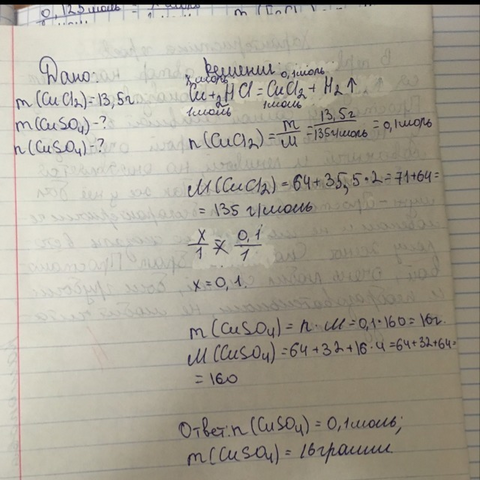 0,125 моль
Дано:
m(CuCl2)=13,5г
m(CuSO4)-?
n(CuSO4)-?
Решения
x моль 0,1моль
Cu+2HCl=CuCl2+H2↑
1моль 1моль
n(CuCl2)=m/M=13,5г/135г/моль=0,1моль
M(CuCl2)=64+35,5·2=71+64=
=135 г/моль
x/1 = 0,1/1
x=0,1.
m(CuSO4)=n·M=0,1·160=16г.
M(CuSO4)=64+32+16·4=64+32+64=
=160
Ответ:n(CuSO4)=0,1моль;
m(CuSO4)=16грамм.